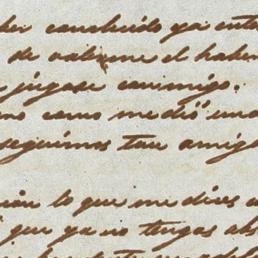 der concluido ya esta
de valerme el haber
jugase conmigo.
no como me dió una
seguimos tan amig
ión lo que me dices a
que ya no tengas abs